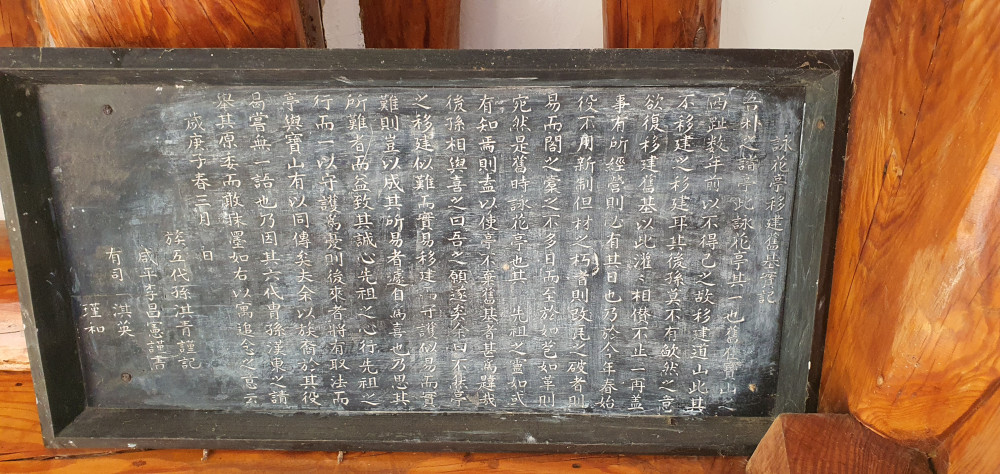 詠花亭移建舊基實記
吾朴之諸亭此詠花亭其一也舊在寶山之
酉趾數年前以不得已之故移建道山此其
不移建之移建耳其後孫莫不有歉然之意
欲復移建舊基以此灌相僝不止一再盖
事有所經營則已有其日也乃於今年春始
役不用新制但材之朽者則改瓦之破者則
易而閣之棄之不多日而至於如芑如革則
宛然是舊時詠花亭也 先祖之靈如或
有知焉則盖以使亭不棄舊基者甚爲韙我
後孫相與喜之曰吾之願遂矣余曰不然亭
之移建似難而實易移建而守護似易而實
難則豈以成其所易者遽自爲喜也乃思其
所難者而益致其誠心先祖之心行先祖之
行而一以守護爲憂則後來者將有取法而
亭與寶山有以同傳矣夫余以族裔於其役
曷嘗無一語也乃因其六代胄孫漢東之請
舉其原委而敢誅墨如右以寓追念之意云
歲庚子春三月 日
族五代孫淇青謹記
咸平李昌憲謹書
有司 淇英
瑾和